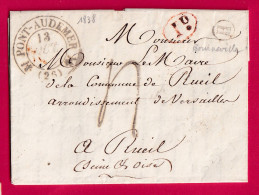 1838
PONT-AUDEMER
13
(26)
1 D
Monsieur
Monsieur le Maire
de la Commune de Rueil
arrondissement de Versailles
A Rueil
(Seine & Oise)